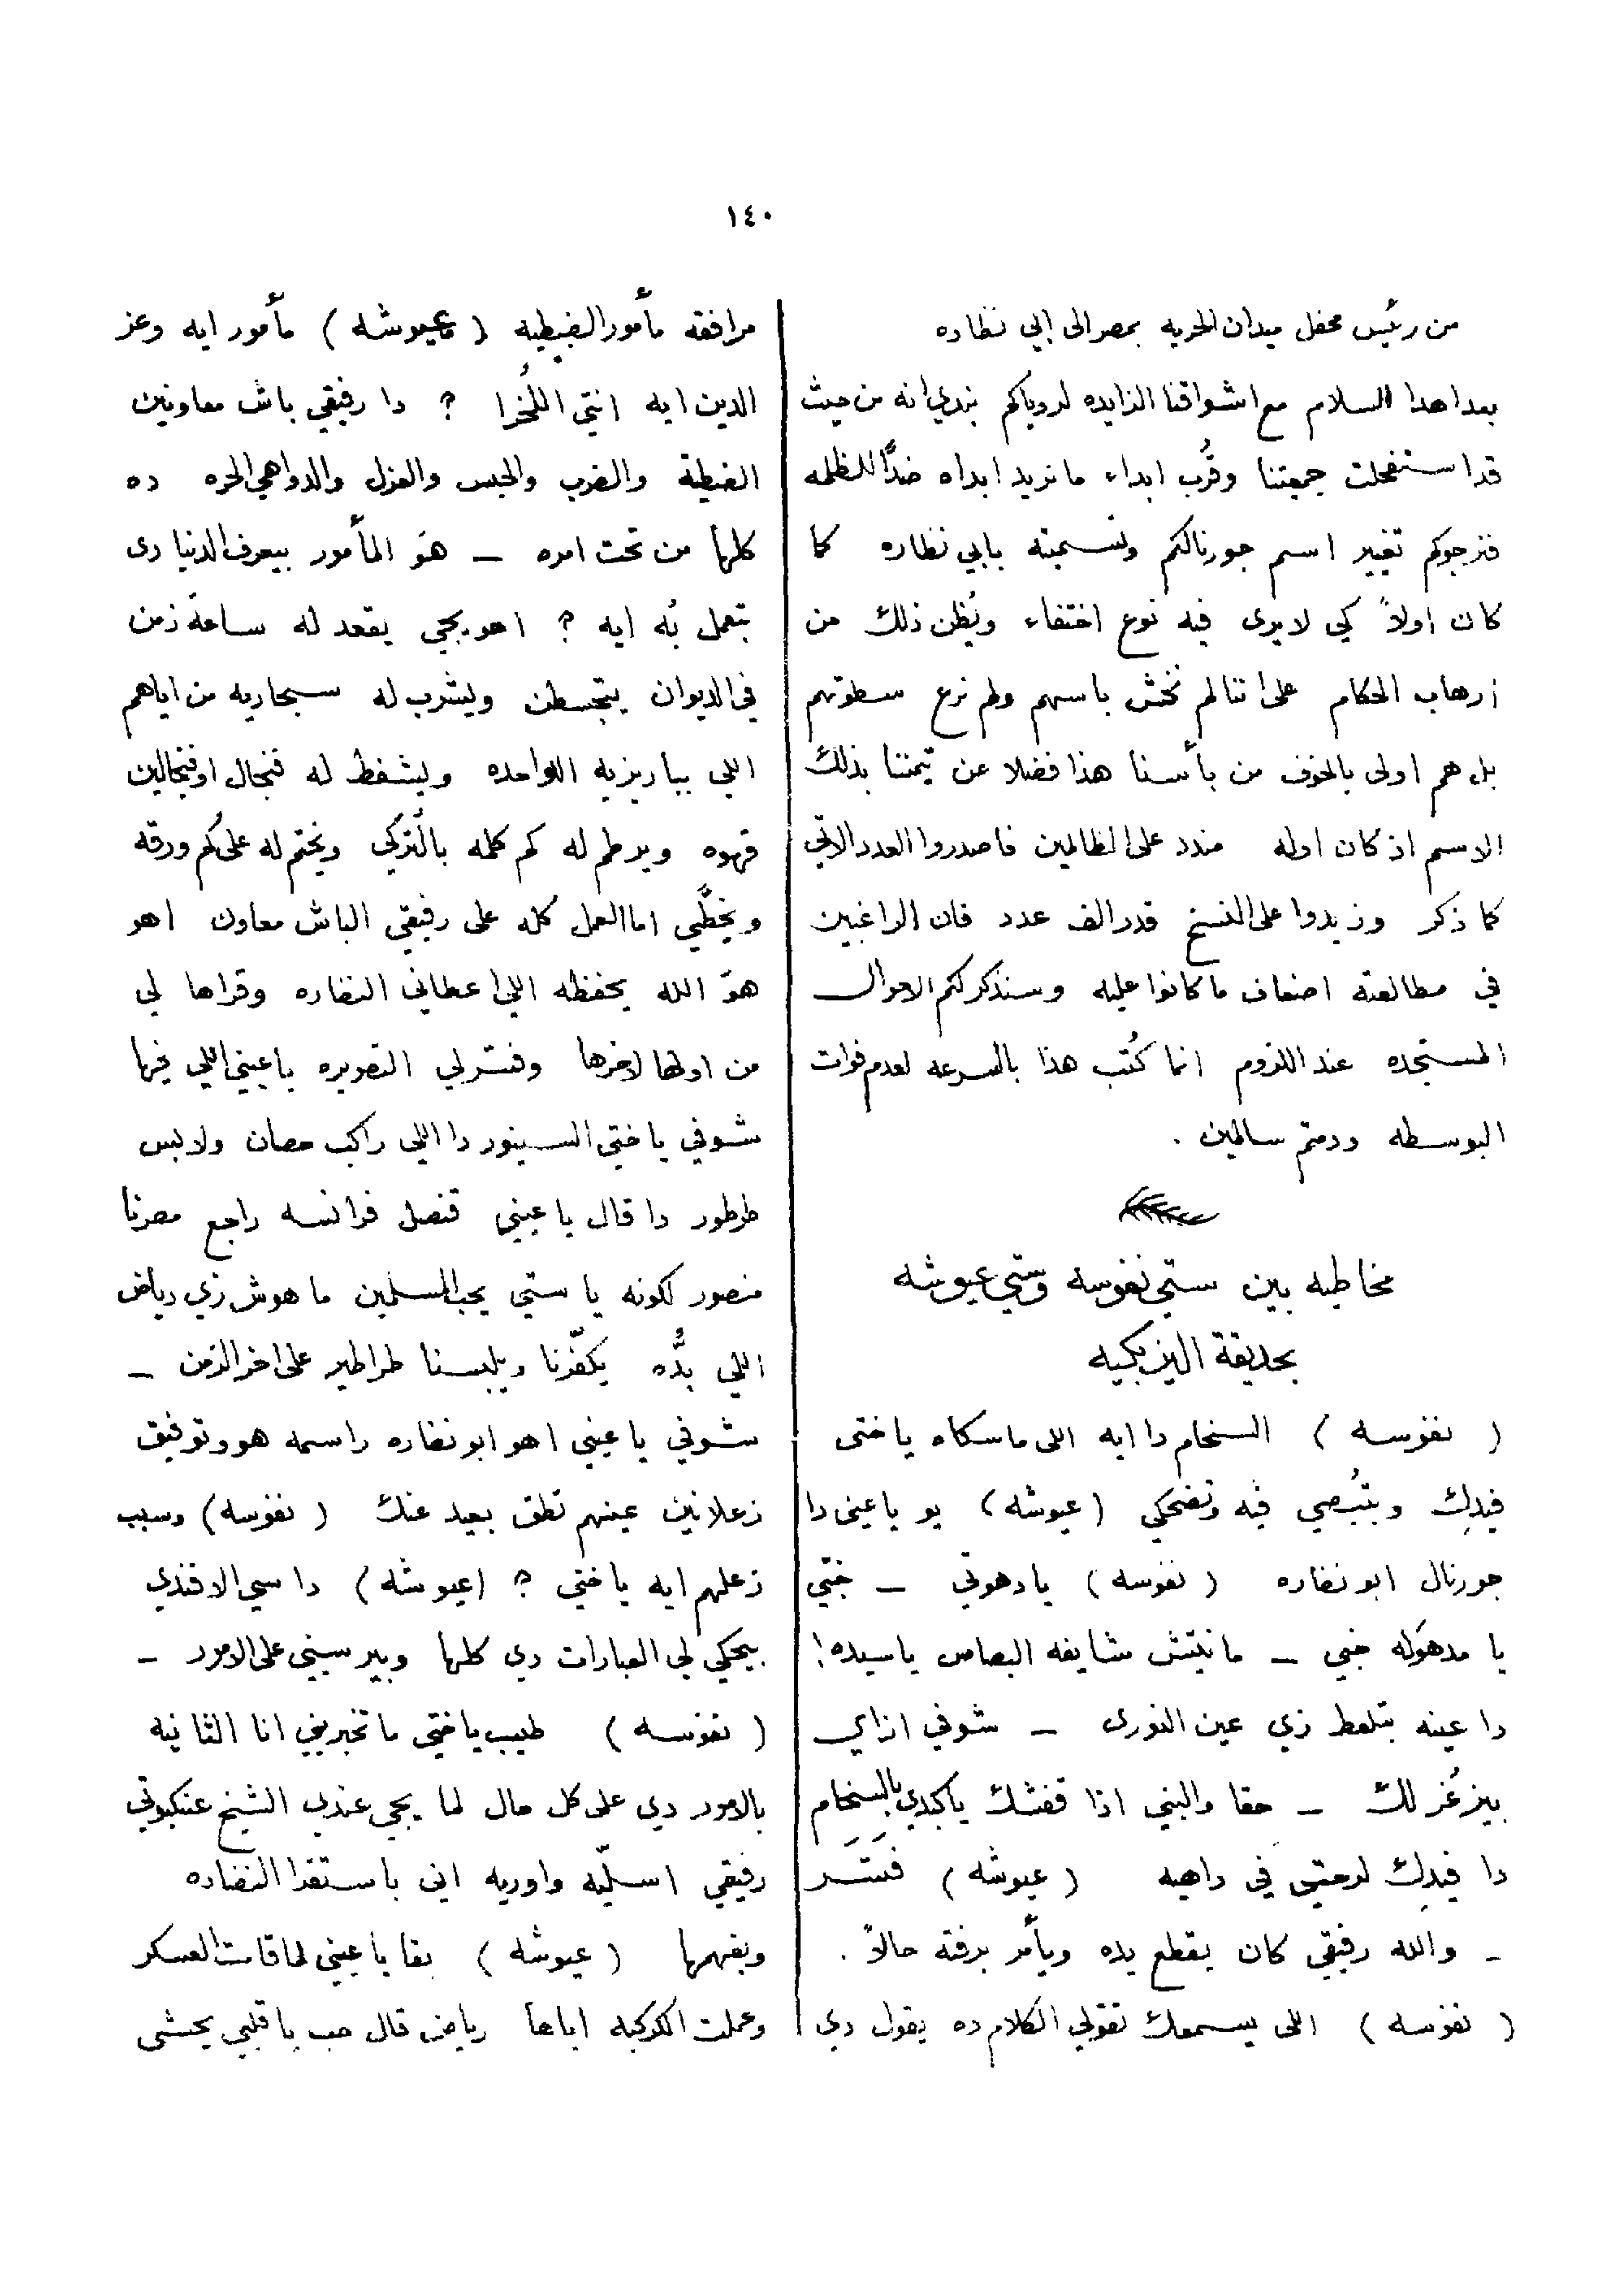 ١٤٠
من رئيس محفل ميدان الحريه بمصر الى ابي نظاره
بعد اهدا السلام مع اشواقنا الزايده لروياكم نبدي انه من حيث
قد استفحلت جمعيتنا وقرُب ابداء ما نريد ابداه ضدًّا للظلمه
فنرجوكم تغيير اسم جورنالكم وتسميته بابي نظاره كما
كان اولاً كي لا يرى فيه نوع اختفاء ويُظن ذلك من
ارهاب الحكام على اننا لم نخش باسهم ولم نرع سطوتهم
بل هم اولى بالخوف من بأسنا هذا فضلا عن تيمننا بذلك
الاسم اذ كان اوله مندد على الظالمين فاصدروا العدد الاتي
كما ذكر وزيدوا على النسخ قدر الف عدد فان الراغبين
في مطالعته اضعاف ما كانوا عليه وسنذكر لكم الاحوال
المستجده عند اللزوم انما كُتب هذا بالسرعه لعدم فوات
البوسطه ودمتم سالمين .
مخاطبه بين ستي نفوسه وستي عيوشه
بحديقة اليزبكيه
( نفوسه ) السخام دا ايه اللى ماسكاه ياختى
فيدِك وبتبُصي فيه وتضحكي (عيوشه) يو يا عينى دا
جورنال ابو نضاره ( نفوسه ) يا دهوتي ــ خبّي
يا مدهوله خبي ــ مانتيش شايفه البصاص يا سيده!
دا عينه بتلعط زي عين النورى ــ شوفي ازاي
بيزغُر لك ــ حقا والنبي اذا قفشك ياكبدي بالسخام
دا فيدِك لرحتي في داهيه ( عيوشه ) فَشَــر
ــ والله رفيقي كان يقطع يده ويأمر برفته حالاً .
( نفوسه ) اللى يسمعك تقولي الكلام ده يقول دي
مرافقه مأمور الضبطيه ( عيوشه ) مأمور ايه وعز
الدين ايه انتي اللُخرا ? دا رفيقي باش معاونين
الضبطية والضرب والحبس والعزل والدواهي الحره ده
كلها من تحت امره ــ هوَ المأمور بيعرف الدنيا دى
بتعمل بُه ايه ? اهو يجي يقعد له ساعة زمن
في الديوان يتجسطن ويشرب له سيجاريه من اياهم
اللي بباريزيه الواحده ويشفط له فنجال او فنجالين
قهوه ويرطم له كم كلمه بالتركي ويختم له على كم ورقه
ويخطّي اما العمل كله على رفيقي الباش معاون اهو
هوَ الله يحفظه اللى اعطاني النضاره وقراها لي
من اولها لاخرها وفسّر لي التصويره يا عيني اللي فيها
شوفي ياختي السينور دا اللي راكب حصان ولابس
طرطور دا قال يا عيني قنصل فرانسه راجع مصرنا
منصور لكونه يا ستي يحب المسلمين ما هوش زي رياض
اللي بدُّه يكفّرنا ويلبسنا طراطير على اخر الزمن ــ
شوفي يا عيني اهو ابو نضاره راسمه هو وتوفيق
زعلانين عينهم تطق بعيد عنك ( نفوسه) وسبب
زعلهم ايه ياختي ? (عيوشه) دا سي الافندي
بيحكي لي العبارات دي كلها وبيرسيني على الامور ــ
( نفوسه ) طيب ياختي ما تخبريني انا الثانيه
بالامور دي على كل حال لما يجي عندي الشيخ عنكبوتي
رفيقي اسلّيه واوريه انى باستقرا النضاره
وبفهمها ( عيوشه ) بقا يا عيني لما قامت العسكر
وعملت الكركبه اياها رياض قال حب يا قلبي يحشى